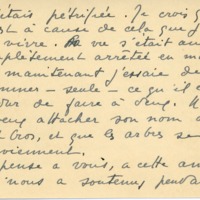 étais pétrifiée. Je crois q
st à cause de cela que j
vivre. La vie s'était an
plètement arrêtée en m
maintenant j'essaie de
mmes – seule – ce qu'il é
our de faire à deux.
eux attacher son nom a
t Cros, et que les arbres se
viennent.
pense à vous, à cette am
nous a soutenus penda